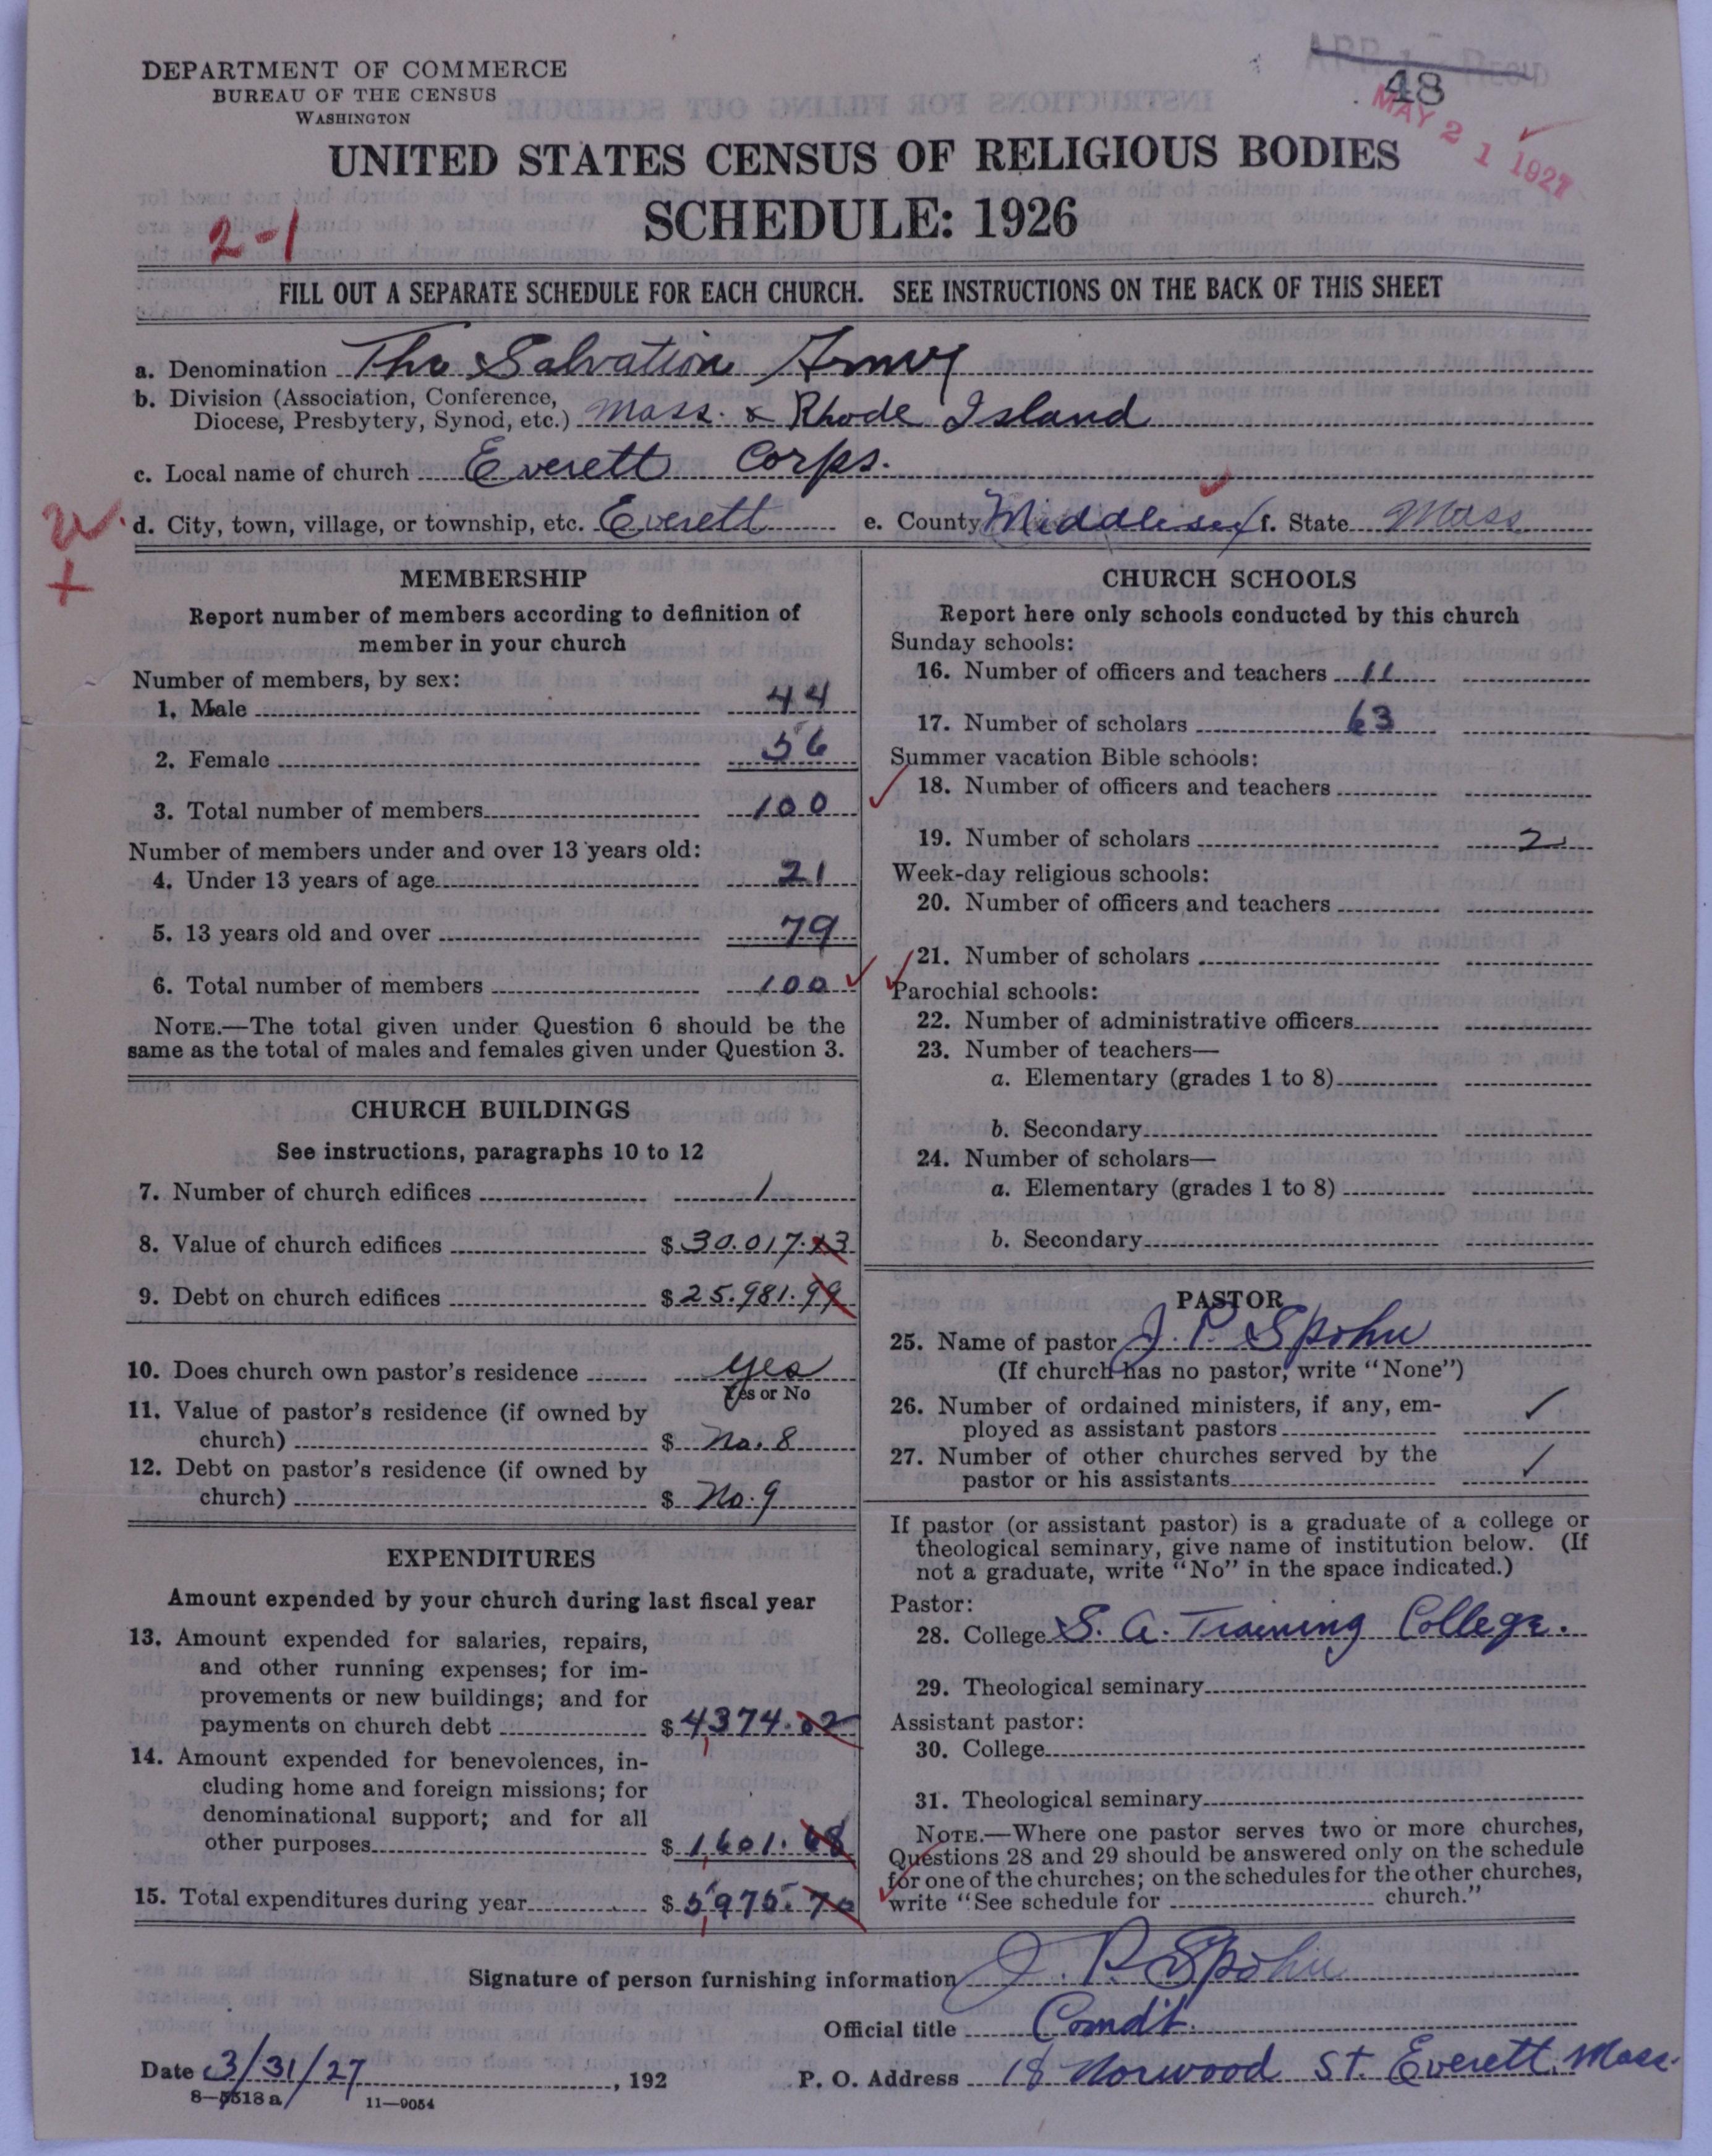 DEPARTMENT OF COMMERCE
BUREAU OF THE CENSUS
WASHINGTON
APR 1 - REC'D
48
MAY 21 1927
UNITED STATES CENSUS OF RELIGIOUS BODIES
SCHEDULE: 1926
2-1
FILL OUT A SEPARATE SCHEDULE FOR EACH CHURCH. SEE INSTRUCTIONS ON THE BACK OF THIS SHEET
a. Denomination The Salvation Army
b. Division (Association, Conference,
Diocese, Presbytery, Synod, etc.) Mass. & Rhode Island
c. Local name of church Everett Corps.
d. City, town, village, or township, etc. Everett e. County Middlesex f. State Mass
MEMBERSHIP
Report number of members according to definition of
member in your church
Number of members, by sex:
1. Male 44
2. Female 56
3. Total number of members 100
Number of members under and over 13 years old:
4. Under 13 years of age 21
5. 13 years old and over 79
6. Total number of members 100
NOTE.—The total given under Question 6 should be the
same as the total of males and females given under Question 3.
CHURCH BUILDINGS
See instructions, paragraphs 10 to 12
7. Number of church edifices 1
8. Value of church edifices $ 30.017.13
9. Debt on church edifices $ 25.981.99
10. Does church own pastor's residence yes
Yes or No
11. Value of pastor's residence (if owned by
church) $ No. 8
12. Debt on pastor's residence (if owned by
church) $ No. 9
EXPENDITURES
Amount expended by your church during last fiscal year
13. Amount expended for salaries, repairs,
and other running expenses; for im-
provements or new buildings; and for
payments on church debt $ 4,374.02
14. Amount expended for benevolences, in-
cluding home and foreign missions; for
denominational support; and for all
other purposes $ 1,601.68
15. Total expenditures during year $ 5,975.70
CHURCH SCHOOLS
Report here only schools conducted by this church
Sunday schools:
16. Number of officers and teachers 11
17. Number of scholars 63
Summer vacation Bible schools:
18. Number of officers and teachers
19. Number of scholars 2
Week-day religious schools:
20. Number of officers and teachers
21. Number of scholars
Parochial schools:
22. Number of administrative officers
23. Number of teachers—
a. Elementary (grades 1 to 8)
b. Secondary
24. Number of scholars—
a. Elementary (grades 1 to 8)
b. Secondary
PASTOR
25. Name of pastor J. P. Spohn
(If church has no pastor, write "None")
26. Number of ordained ministers, if any, em-
ployed as assistant pastors ✓
27. Number of other churches served by the
pastor or his assistants ✓
If pastor (or assistant pastor) is a graduate of a college or
theological seminary, give name of institution below. (If
not a graduate, write "No" in the space indicated.)
Pastor:
28. College S. A. Training College.
29. Theological seminary
Assistant pastor:
30. College
31. Theological seminary
NOTE.—Where one pastor serves two or more churches,
Questions 28 and 29 should be answered only on the schedule
for one of the churches; on the schedules for the other churches,
write "See schedule for church."
Signature of person furnishing information J. P. Spohn
Official title Comdt.
Date 3/31/27, 192 P. O. Address 18 Norwood St. Everett. Mass.
8—5518 a 11—9054